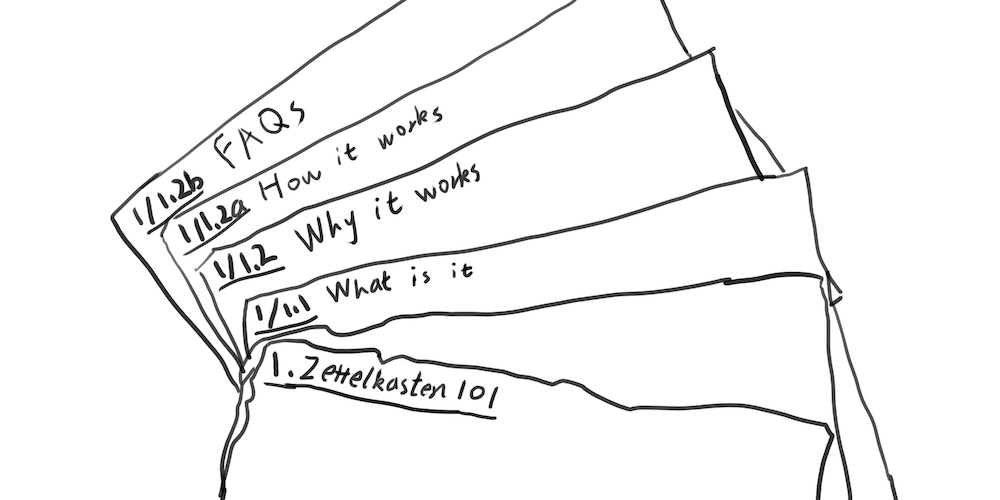 1/1.2b FAQs
1/1.2a How it works
1/1.2 Why it works
1/1.1 What is it
1. Zettelkasten 101